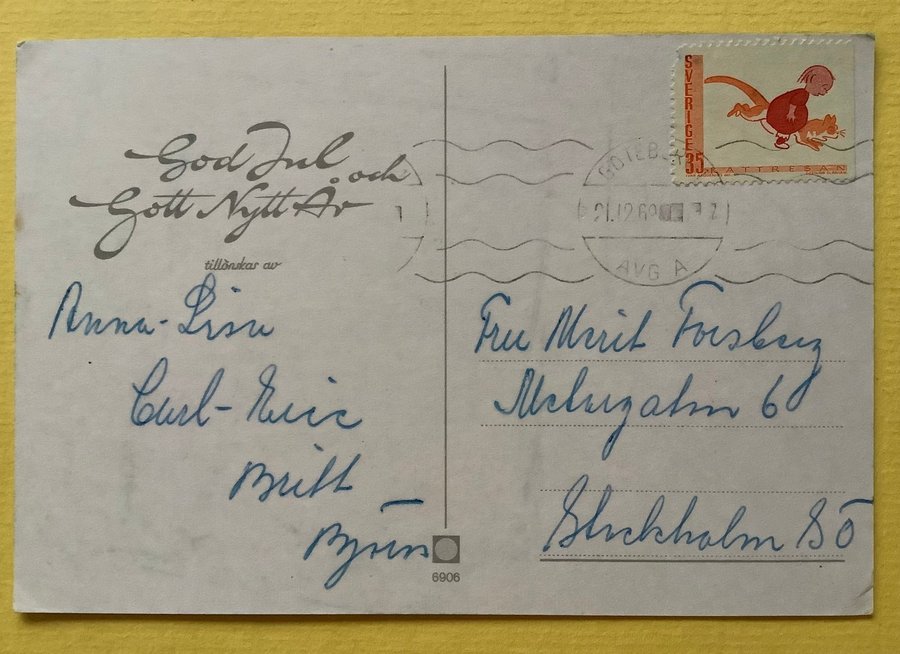 God Jul
och
Gott Nytt År
tillönskas av
Anna-Lisa
Carl-Eric
Britt
Björn
6906
SVERIGE
35
KATTRESAN
GÖTEBORG
1
21.12.69
AVG A
Fru Marit Forsberg
Metargatan 6
Stockholm SÖ